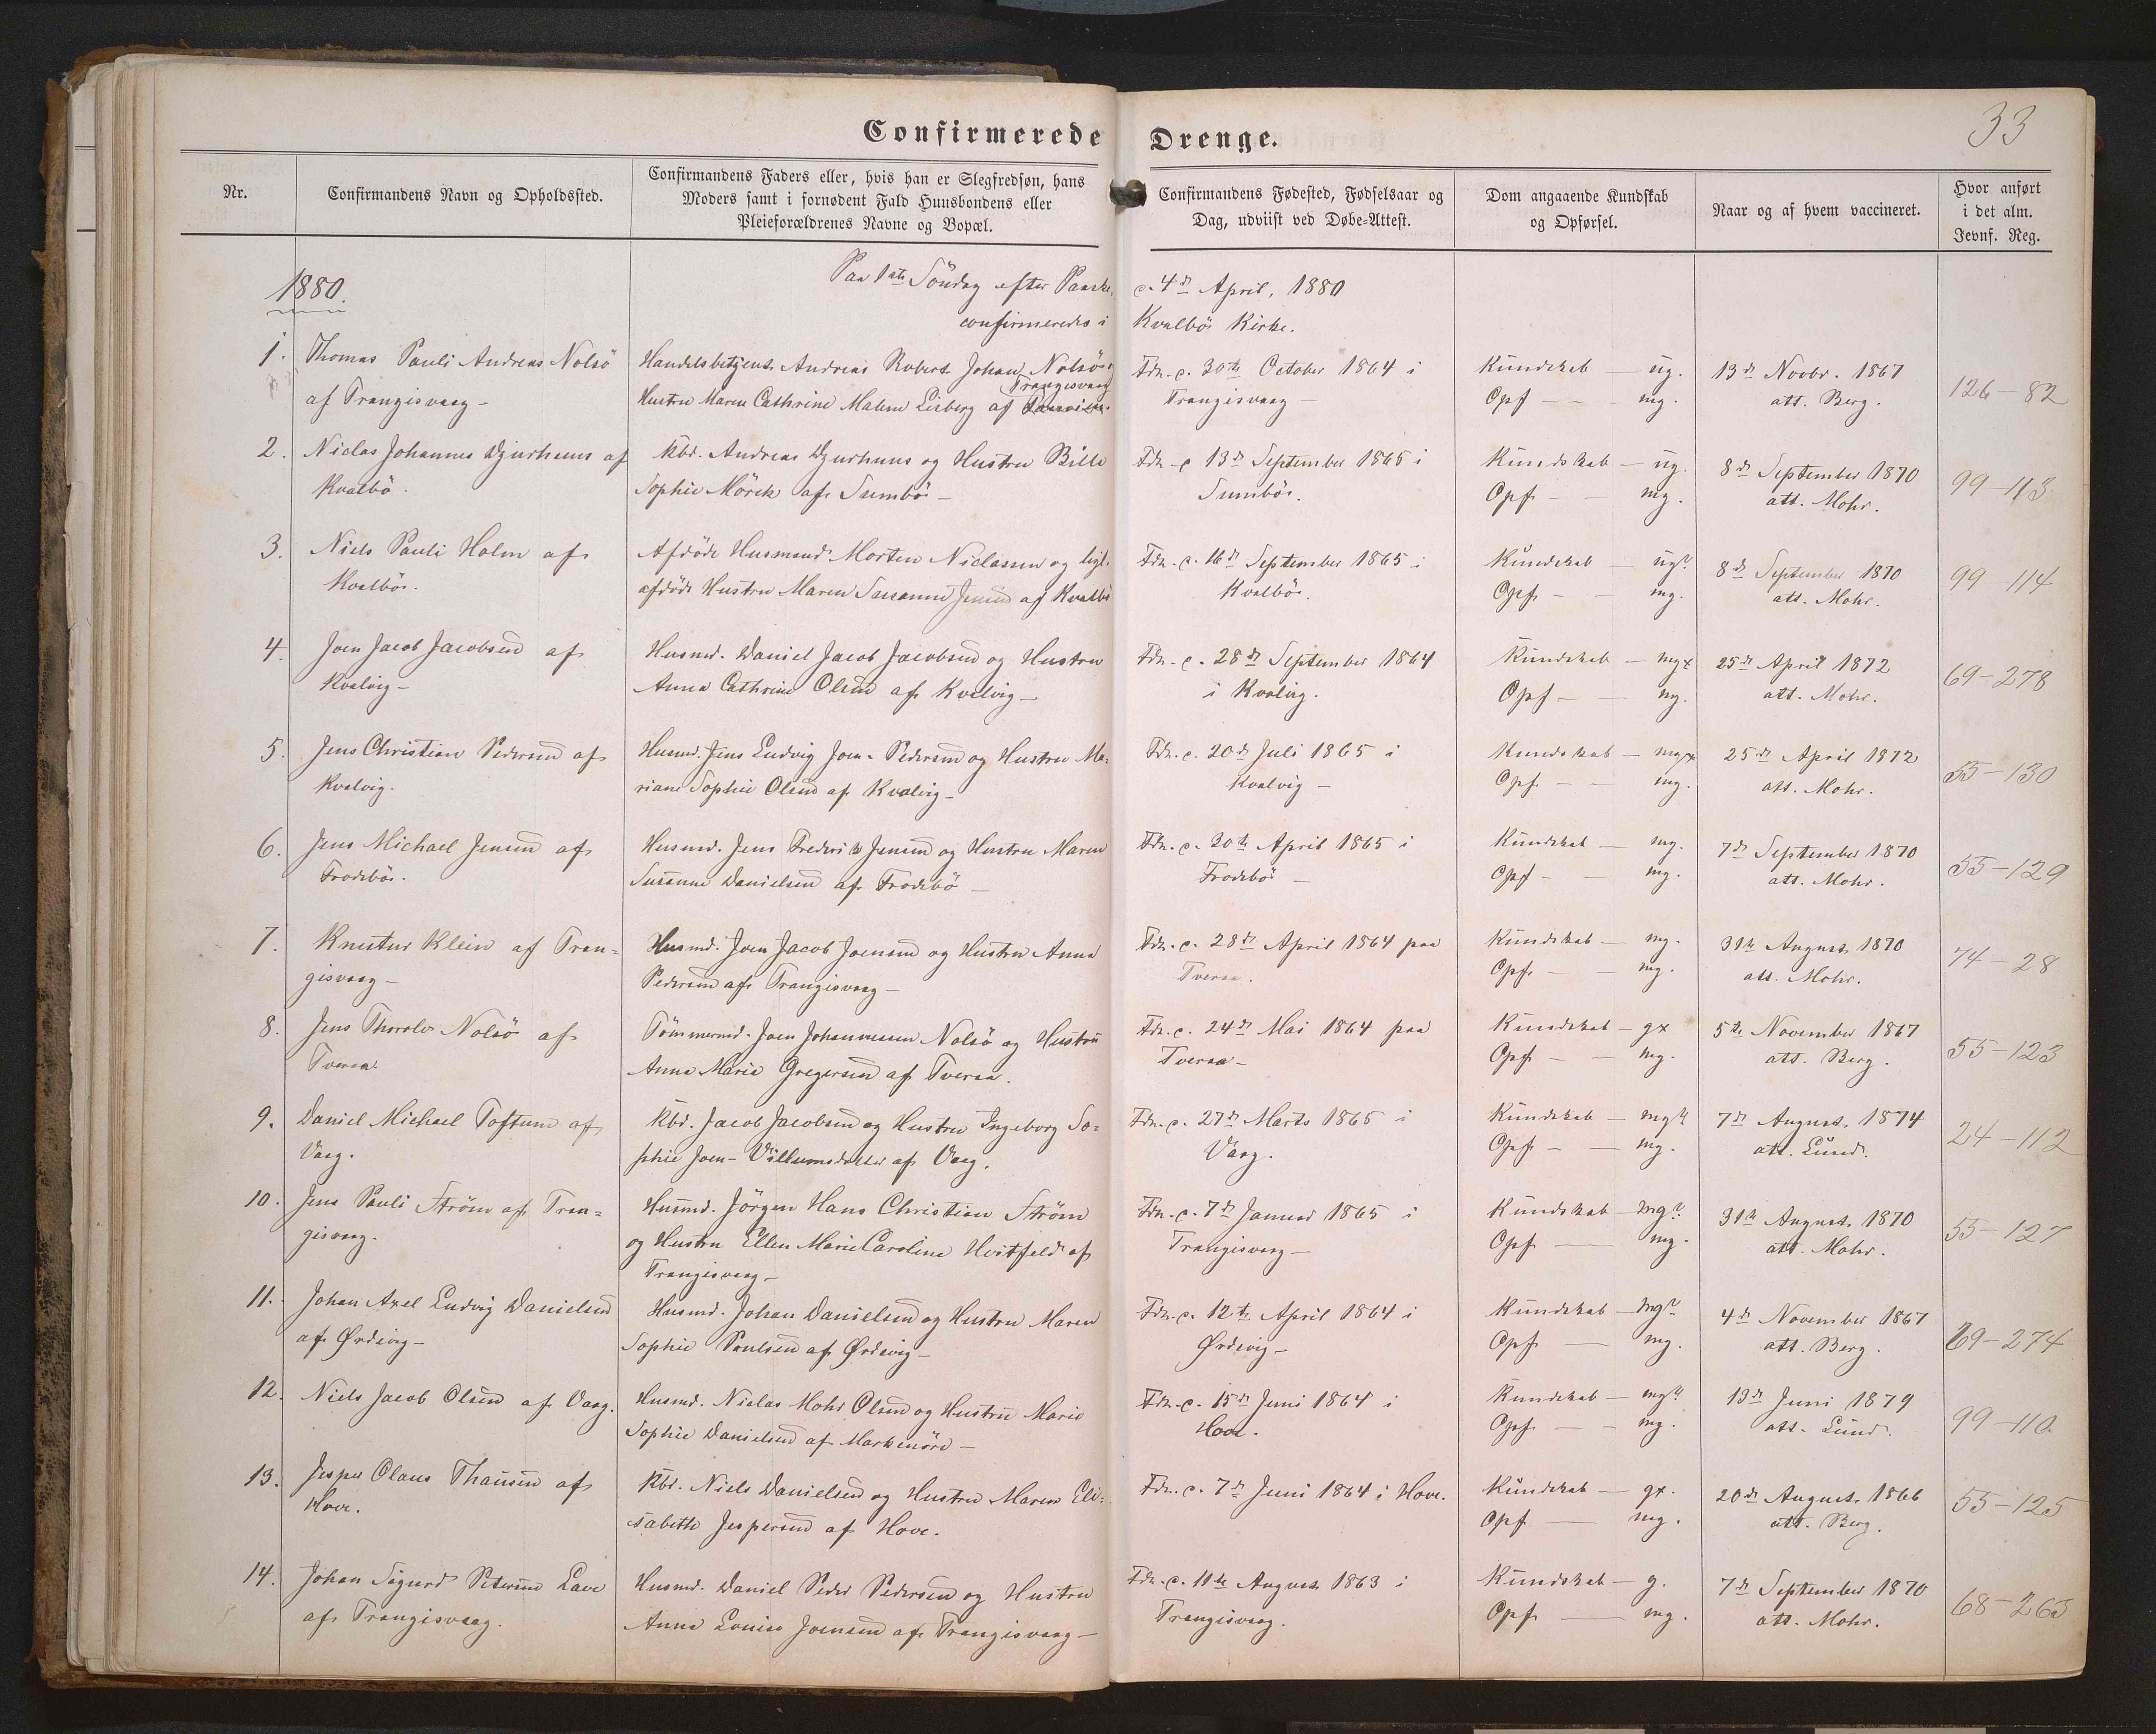 Confirmerede Drenge.
33
Nr.
Confirmandens Navn og Opholdssted.
Confirmandens Faders eller, hvis han er Slegfredsøn, hans
Moders samt i fornødent Fald Huusbondens eller
Pleieforældrenes Navne og Bopæl.
Confirmandens Fødested, Fødselsaar og
Dag, udviist ved Døbe-Attest.
Dom angaaende Kundskab
og Opførsel.
Naar og af hvem vaccineret.
Hvor anført
i det alm.
Jevnf. Reg.
1880.
Paa 1ste Söndag efter Paaske, d. 4de April, 1880
confirmeredes i Kvalbö Kirke.
1. Thomas Pauli Andreas Nolsö
af Trangisvaag -
Handelsbetjent Andreas Robert Johan Nolsö og
Trangisvaag
Hustru Maren Cathrine Malene Lisberg af
Fdt. d. 30te October 1864 i
Trangisvaag -
Kundskab - ug.
Opf - - mg.
13de Novbr. 1867
att. Berg.
126-82
2. Niclas Johannes Djurhuus af
Kvalbö.
Kbd. Andreas Djurhuus og Hustru Bille
Sophie Mörck af Sumbö -
Fdt. d. 13de September 1865 i
Sumbö.
Kundskab - ug.
Opf - - mg.
8de September 1870
att. Mohr.
99-113
3. Niels Pauli Holm af
Kvalbö.
Afdöde Husmand Morten Niclassen og ligl.
afdöde Hustru Maren Susanne Jensen af Kvalbö
Fdt. d. 16de September 1865 i
Kvalbö.
Kundskab - ug?
Opf - - mg.
8de September 1870
att. Mohr.
99-114
4. Joen Jacob Jacobsen af
Kvalvig -
Husmd. Daniel Jacob Jacobsen og Hustru
Anna Cathrine Olsen af Kvalvig -
Fdt. d. 28de September 1864
i Kvalvig.
Kundskab - mgx
Opf - - mg.
25de April 1872
att. Mohr.
69-278
5. Jens Christian Pedersen af
Kvalvig.
Husmd. Jens Ludvig Joen-Pedersen og Hustru Ma-
riane Sophie Olsen af Kvalvig -
Fdt. d. 20de Juli 1865 i
Kvalvig -
Kundskab - mgx
Opf - - mg.
25de April 1872
att. Mohr.
55-130
6. Jens Michael Jensen af
Frodebö.
Husmd. Jens Frederik Jensen og Hustru Maren
Susanne Danielsen af Frodebö -
Fdt. d. 20de April 1865 i
Frodebö -
Kundskab - mg.
Opf - - mg.
7de September 1870
att. Mohr.
55-129
7. Knutur Klein af Tran-
gisvaag -
Husmd. Joen Jacob Joensen og Hustru Anna
Pedersen af Trangisvaag -
Fdt. d. 28de April 1864 paa
Tveraa.
Kundskab - mg.
Opf - - mg.
31te August 1870
att. Mohr.
74-28
8. Jens Thorolv Nolsö af
Tveraa
Tömmermd. Joen Johannesen Nolsö og Hustru
Anna Maria Gregersen af Tveraa.
Fdt. d. 24de Mai 1864 paa
Tveraa -
Kundskab - gx
Opf - - mg.
5te November 1867
att. Berg.
55-123
9. Daniel Michael Toftum af
Vaag.
Kbd. Jacob Jacobsen og Hustru Ingeborg So-
phie Joen-Villumsdatter af Vaag.
Fdt. d. 27de Marts 1865 i
Vaag.
Kundskab - mg?
Opf - - mg.
7de August 1874
att. Lund.
24-112
10. Jens Pauli Ström af Tran-
gisvaag.
Husmd. Jörgen Hans Christian Ström
og Hustru Ellen Marie Caroline Hvitfeld af
Trangisvaag -
Fdt. d. 7de Januar 1865 i
Trangisvaag -
Kundskab - mg?
Opf - mg.
31te August 1870
att. Mohr.
55-127
11. Johan Axel Ludvig Danielsen
af Ördevig -
Husmd. Johan Danielsen og Hustru Maren
Sophie Poulsen af Ördevig -
Fdt. d. 12te April 1864 i
Ördevig -
Kundskab - mg?
Opf - mg.
4de November 1867
att. Berg.
69-274
12. Niels Jacob Olsen af Vaag.
Husmd. Niclas Mohr Olsen og Hustru Marie
Sophie Danielsen af Markenöre -
Fdt. d. 15de Juni 1864 i
Hove.
Kundskab - mg?
Opf - - mg.
13de Juni 1879
att. Lund.
99-110.
13. Jesper Olaus Thausen af
Hove.
Kbd. Niels Danielsen og Hustru Maren Eli-
sabeth Jespersen af Hove.
Fdt. d. 7de Juni 1864 i Hove.
Kundskab - gx.
Opf - mg.
20de August 1866
att. Berg.
55-125
14. Johan Sigurd Petersen Lave
af Trangisvaag.
Husmd. Daniel Peder Pedersen og Hustru
Anna Louise Joensen af Trangisvaag -
Fdt. d. 11te August 1863 i
Trangisvaag.
Kundskab - g.
Opf - mg.
7de September 1870
att. Mohr.
68-263